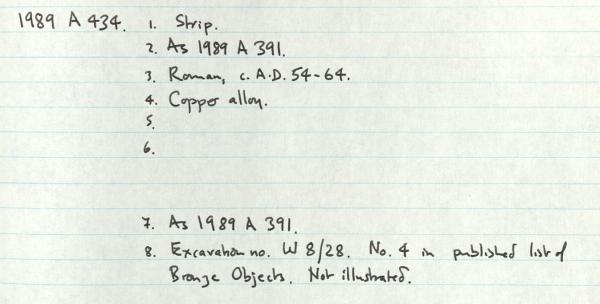 1989 A 434. 1. Strip.
2. As 1989 A 391.
3. Roman, c. A.D. 54-64.
4. Copper alloy.
5.
6.
7. As 1989 A 391.
8. Excavation no. W 8/28. No. 4 in published list of
Bronze Objects. Not illustrated.